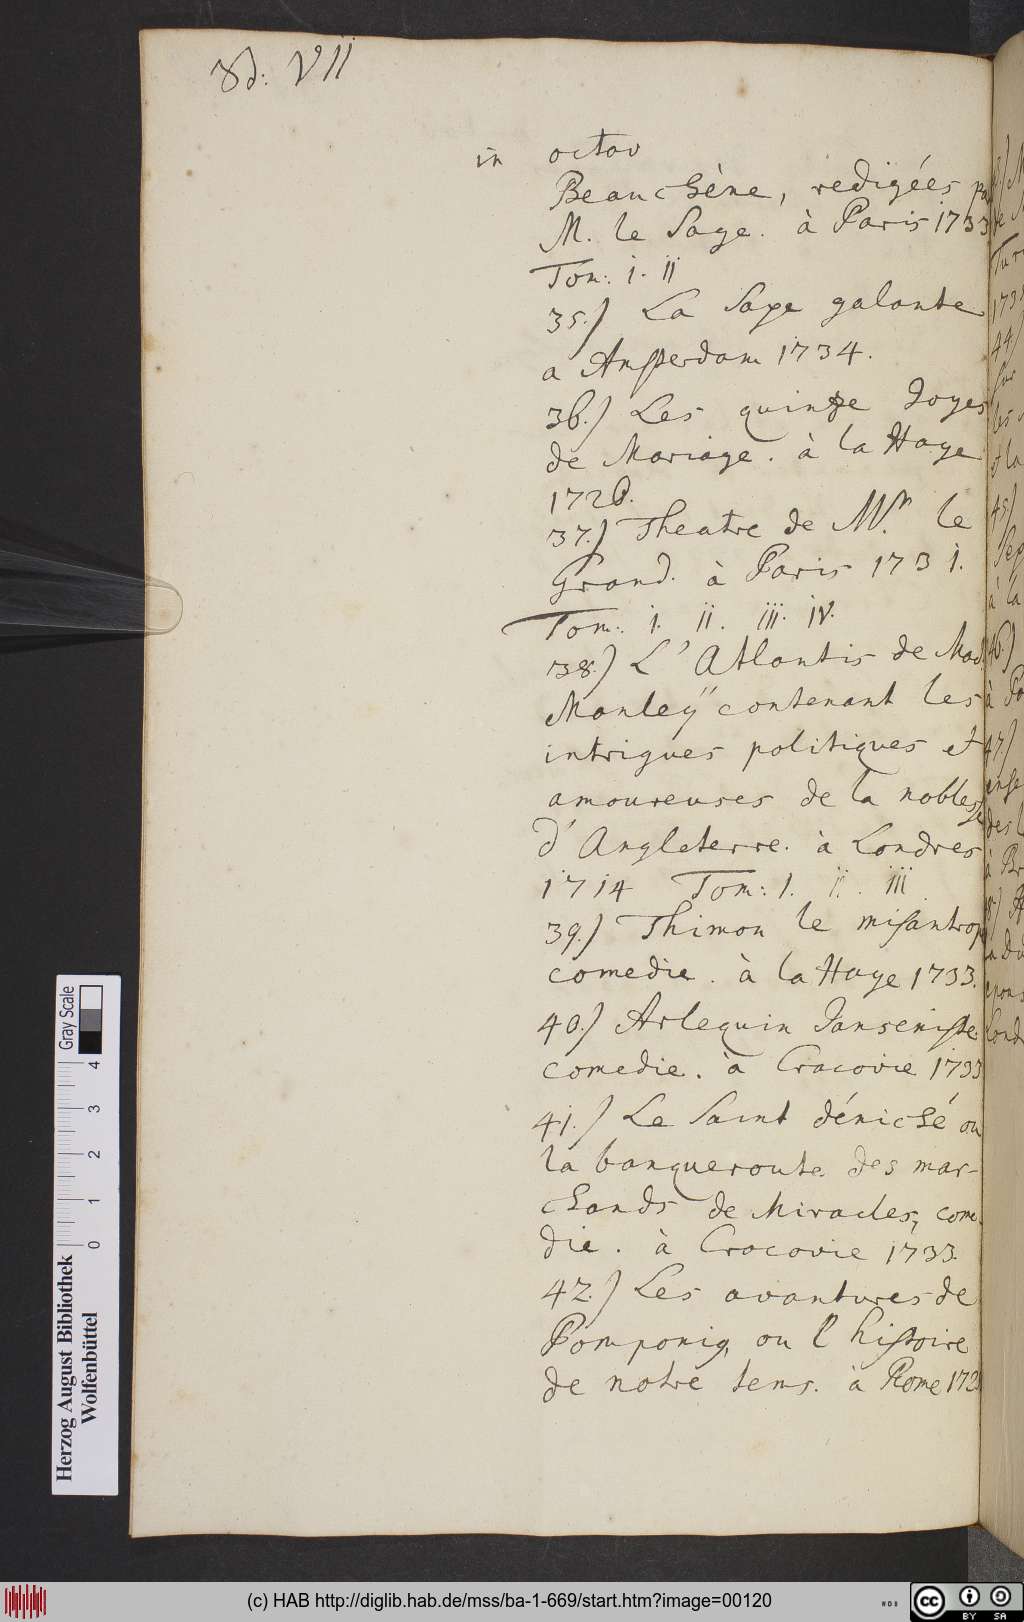 VII
in octav
Beauchène, redigées pa
M. le Sage. à Paris 1733
Tom: i. ii
35.) La Saxe galante
a Amsterdam 1734.
36.) Les quinze Joyes
de Mariage. à la Haye
1726.
37.) Theatre de Mr. le
Grand. à Paris 1731.
Tom: i. ii. iii. iv.
38.) L'Atlantis de Mad
Manleÿ contenant les
intrigues politiques et
amoureuses de la noblesse
d'Angleterre. à Londres
1714 Tom: I. ii. iii
39.) Thimon le misantrop
comedie. à la Haye 1733.
40.) Arlequin Janseniste
comedie. à Cracovie 1733
41.) Le Saint déniché ou
la banqueroute des mar-
chands de Miracles, come
die. à Cracovie 1733.
42.) Les avantures de
Pomponiq, ou l'histoire
de notre tems. à Rome 172
Gray Scale
0 1 2 3 4
Herzog August Bibliothek
Wolfenbüttel
(c) HAB http://diglib.hab.de/mss/ba-1-669/start.htm?image=00120
cc BY SA